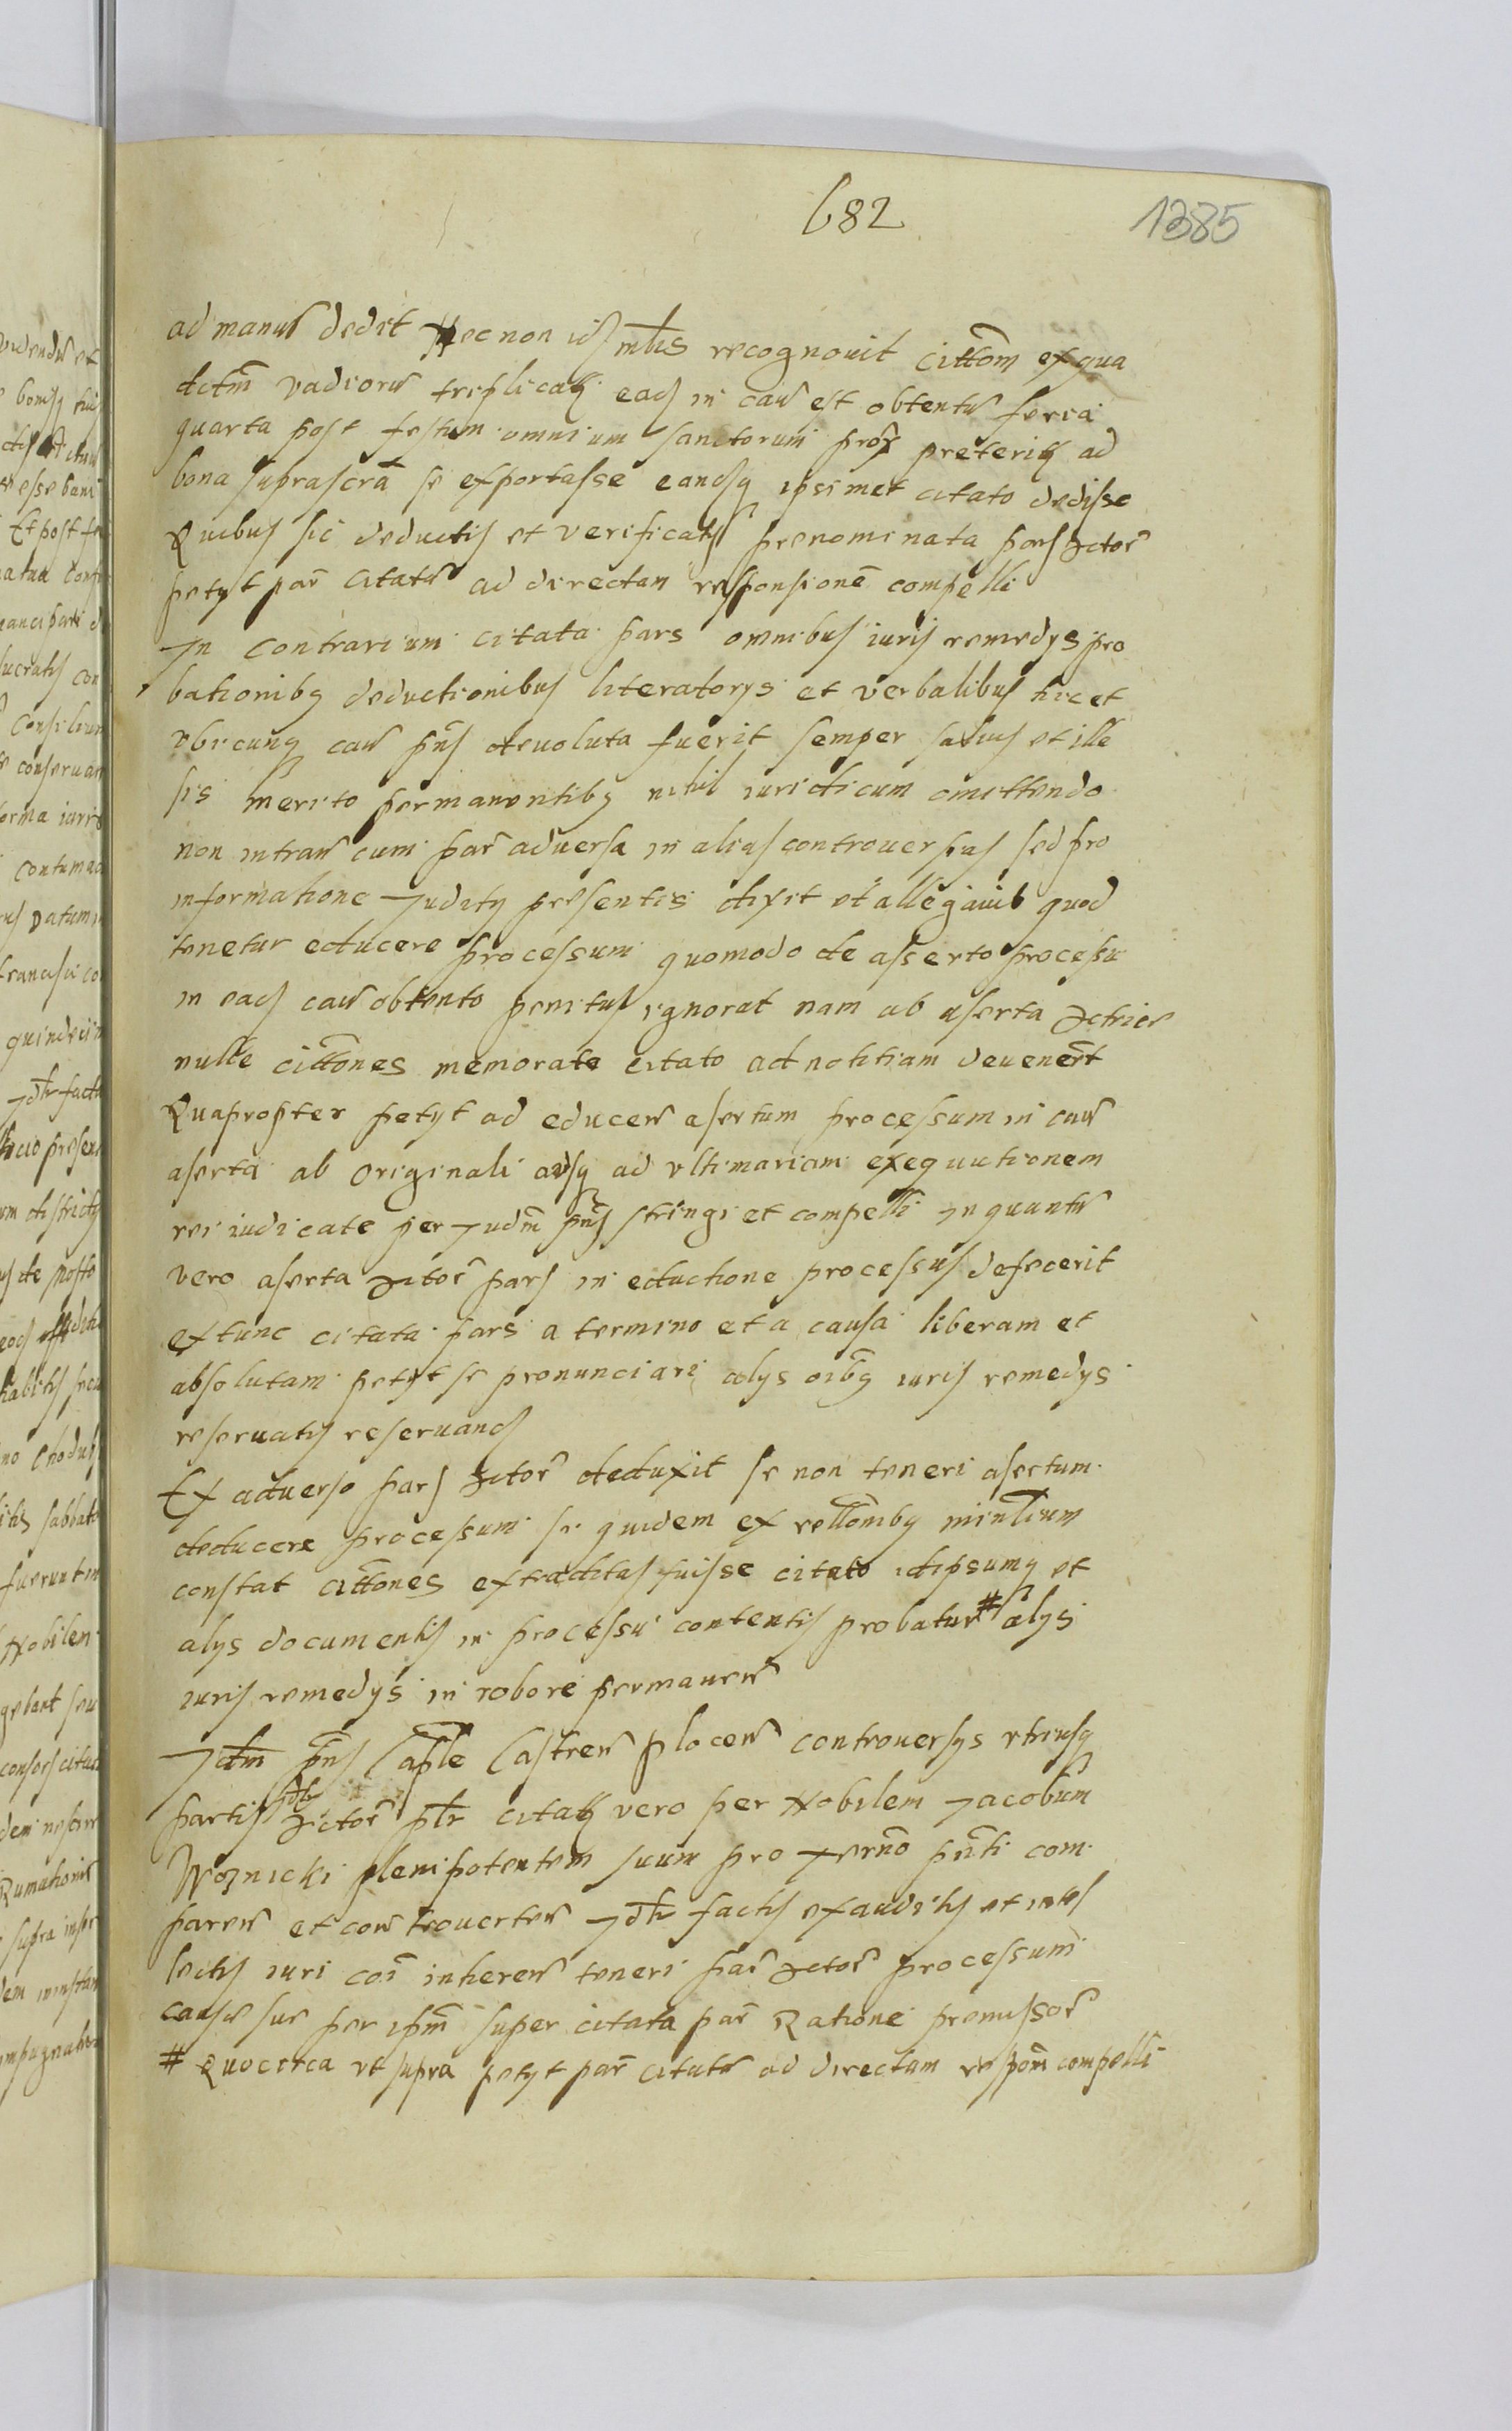 682
1385
ad manus dedit Necnon id mtis recognouit cittom ex qua
dctm vadiorū triplicatȝ ead in cau est obtentū feria
quarta post festum omnium sanctorum prox preteritȝ ad
bona suprascra se exportasse eandsq ipsimet citato dedisse
Quibus sic deductis et verificatis prenominata pars Actor
petyt par citatā ad directam responsionē compelli
In contrarium citata pars omnibus iuris remedys pro
bationibq deductionibus literatorys et verbalibus hic et
vbicunq cau pns deuoluta fuerit semper saluis et ille
sis merito permanentibq nihil iuridicum omittendo
non intran cum par aduersa in alias controuersias sed pro
informatione Judity presentis dixit et allegauit quod
tenetur educere processum quomodo de asserto processu
in ead cau obtento penitus ignorat nam ab aserta Actrice
nulle cittones memorate citato ad notitiam deuenert
Quapropter petyt ad educen asertum processum in cau
aserta ab originali adusq ad vltimariam exequutionem
rei iudicate per Judm pns stringi et compelli In quantū
vero aserta Actor pars in eductione processus defecerit
extunc citata pars a termino et a causa liberam et
absolutam petyt se pronunciari alys oibq iuris remedys
reseruatis reseruand
Ex aduerso pars Actor deduxit se non teneri asertum
deducere processum si quidem ex rellombq minlium
constat cittones extraditas fuisse citato idipsumq et
alys documentis in processu contentis probatur # alys
iuris remedys in robore permanen
Jdm pns Caple Castren Plocen controuersys vtriusq
partis pdt Actor ptr citatȝ vero per Nobilem Jacobum
Woznicki plenipotentem suum pro termno pnti com
paren et controuerten Jdtr factis exauditis et intel
lectis iuri coi inheren teneri par Actor processum
cause sue per ipm super citata par Ratione premissor
# Quocirca vt supra petyt par citatā ad directam respom compelli